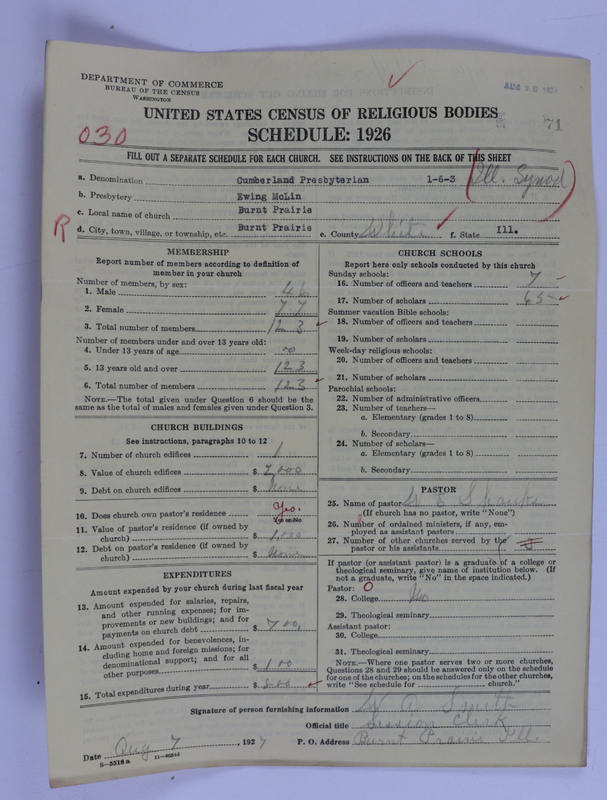 DEPARTMENT OF COMMERCE
BUREAU OF THE CENSUS
WASHINGTON
AUG 20 1927
71
UNITED STATES CENSUS OF RELIGIOUS BODIES
SCHEDULE: 1926
030
FILL OUT A SEPARATE SCHEDULE FOR EACH CHURCH. SEE INSTRUCTIONS ON THE BACK OF THIS SHEET
a. Denomination Cumberland Presbyterian 1-6-3 Ill. Synod
b. Presbytery Ewing McLin
c. Local name of church Burnt Prairie
R
d. City, town, village, or township, etc. Burnt Prairie e. County White f. State Ill.
MEMBERSHIP
Report number of members according to definition of
member in your church
Number of members, by sex:
1. Male 46
2. Female 77
3. Total number of members 123
Number of members under and over 13 years old:
4. Under 13 years of age
5. 13 years old and over 123
6. Total number of members 123
NOTE.—The total given under Question 6 should be the
same as the total of males and females given under Question 3.
CHURCH BUILDINGS
See instructions, paragraphs 10 to 12
7. Number of church edifices 1
8. Value of church edifices $ 2,000
9. Debt on church edifices $ None
10. Does church own pastor's residence Yes.
Yes or No
11. Value of pastor's residence (if owned by
church) $ 1,000
12. Debt on pastor's residence (if owned by
church) $ None
EXPENDITURES
Amount expended by your church during last fiscal year
13. Amount expended for salaries, repairs,
and other running expenses; for im-
provements or new buildings; and for
payments on church debt $ 700.
14. Amount expended for benevolences, in-
cluding home and foreign missions; for
denominational support; and for all
other purposes $ 100
15. Total expenditures during year $ 800
CHURCH SCHOOLS
Report here only schools conducted by this church
Sunday schools:
16. Number of officers and teachers 7
17. Number of scholars 65
Summer vacation Bible schools:
18. Number of officers and teachers
19. Number of scholars
Week-day religious schools:
20. Number of officers and teachers
21. Number of scholars
Parochial schools:
22. Number of administrative officers
23. Number of teachers—
a. Elementary (grades 1 to 8)
b. Secondary
24. Number of scholars—
a. Elementary (grades 1 to 8)
b. Secondary
PASTOR
25. Name of pastor
(If church has no pastor, write "None")
26. Number of ordained ministers, if any, em-
ployed as assistant pastors
27. Number of other churches served by the
pastor or his assistants
If pastor (or assistant pastor) is a graduate of a college or
theological seminary, give name of institution below. (If
not a graduate, write "No" in the space indicated.)
Pastor: O
28. College No
29. Theological seminary
Assistant pastor:
30. College
31. Theological seminary
NOTE.—Where one pastor serves two or more churches,
Questions 28 and 29 should be answered only on the schedule
for one of the churches; on the schedules for the other churches,
write "See schedule for church."
Signature of person furnishing information W A Smith
Official title Session Clerk
Date Aug 7, 1927 P. O. Address Burnt Prairie Ill.
8-5518a 11-46846